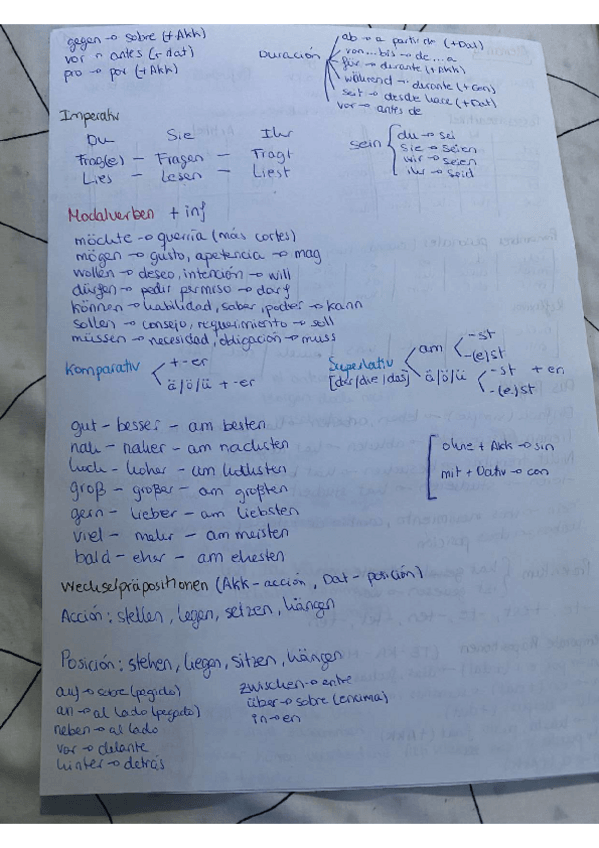 gegen → sobre (+Akk)
vor → antes (+dat)
pro → por (+Akk)
Duración
ab → a partir de (+Dat)
von...bis → de...a
für → durante (+Akk)
während → durante (+Gen)
seit → desde hace (+Dat)
vor → antes de
Imperativ
Du Sie Ihr
Frag(e) - Fragen - Fragt
Lies - Lesen - Liest
sein
du → sei
Sie → seien
wir → seien
ihr → seid
Modalverben + inf
möchte → querría (más cortes)
mögen → gusto, apetencia → mag
wollen → deseo, intención → will
dürfen → pedir permiso → darf
können → habilidad, saber, poder → kann
sollen → consejo, requerimiento → soll
müssen → necesidad, obligación → muss
Komparativ
+ -er
ä/ö/ü + -er
Superlativ
[der/die/das]
am
-st
-(e)st
ä/ö/ü
-st + en
-(e)st
gut - besser - am besten
nah - näher - am nächsten
hoch - höher - am höchsten
groß - größer - am größten
gern - lieber - am liebsten
viel - mehr - am meisten
bald - eher - am ehesten
ohne + Akk → sin
mit + Dativ → con
Wechselpräpositionen (Akk - acción, Dat - posición)
Acción: stellen, legen, setzen, hängen
Posición: stehen, liegen, sitzen, hängen
auf → sobre (pegado)
an → al lado (pegado)
neben → al lado
vor → delante
hinter → detrás
zwischen → entre
über → sobre (encima)
in → en